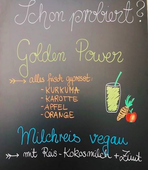 Schon probiert?
Golden Power
alles frisch gepresst
- KURKUMA
- KAROTTE
- APFEL
- ORANGE
Milchreis vegan
mit Reis-Kokosmilch + Zimt